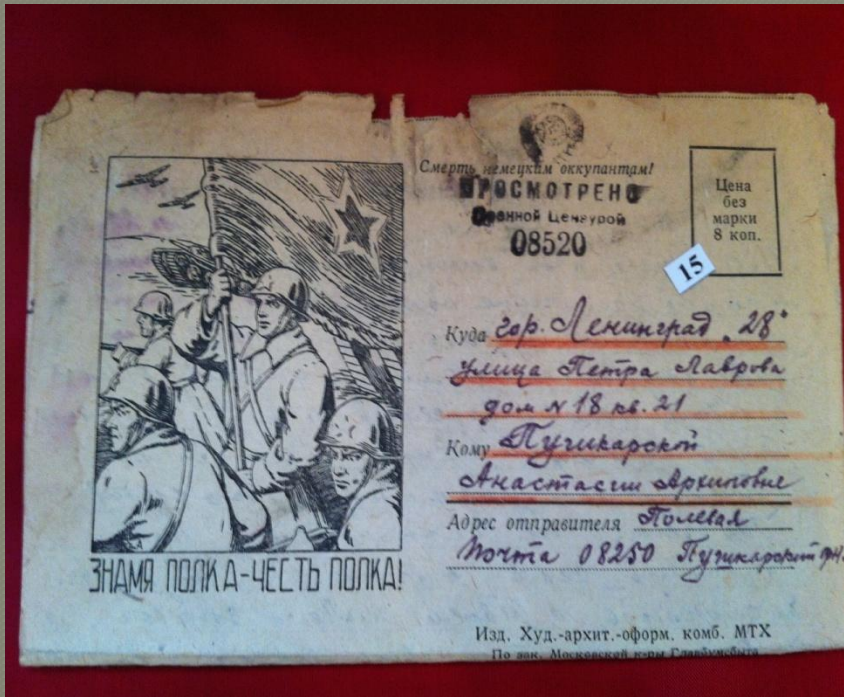 Смерть немецким оккупантам!
ПРОСМОТРЕНО
Военной Цензурой
08520
Цена
без
марки
8 коп.
15
Куда гор. Ленинград „28"
улица Петра Лаврова
дом № 18 кв. 21
Кому Пушкарской
Анастасии Архиповне
Адрес отправителя Полевая
Почта 08250
ЗНАМЯ ПОЛКА-ЧЕСТЬ ПОЛКА!
Изд. Худ.-архит.-оформ. комб. МТХ
По зак. Московской к-ры Главбумсбыта